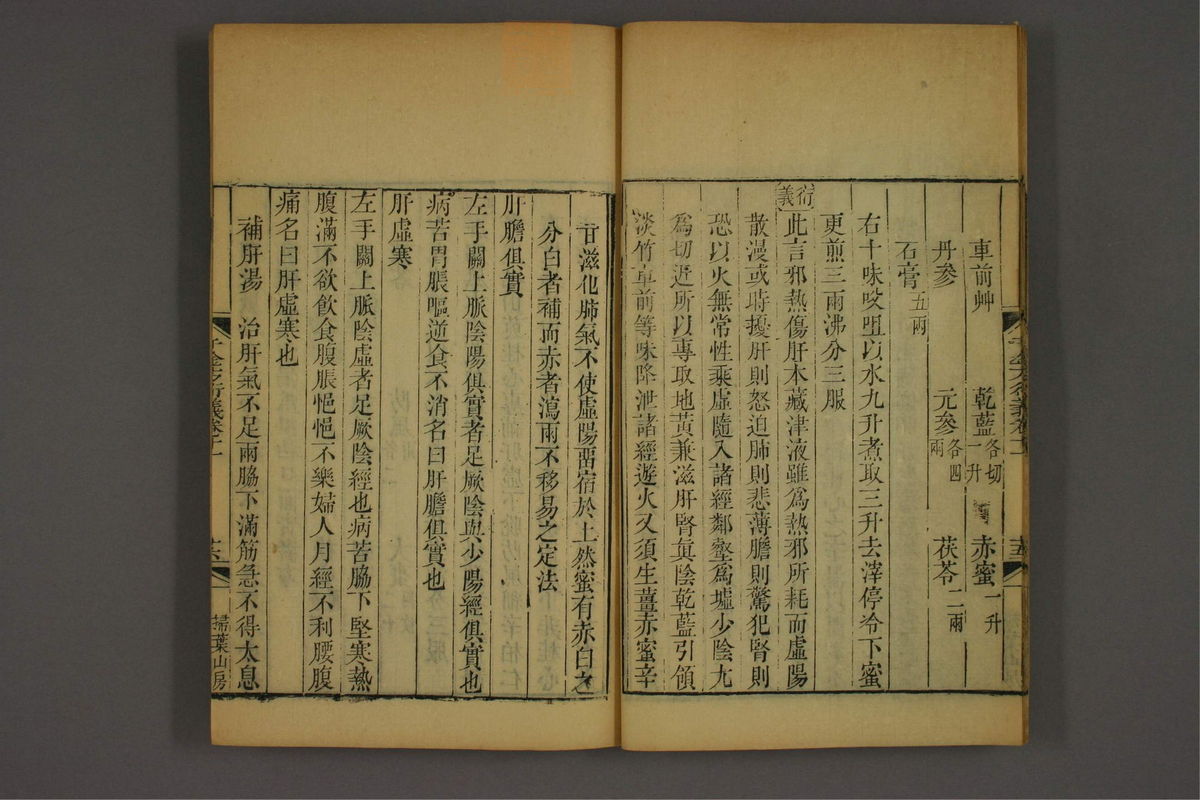 車前艸 乾藍各切一升 赤蜜一升
丹參 元參各四兩 茯苓二兩
石膏五兩
右十味㕮咀以水九升煮取三升去滓停冷下蜜
更煎三兩沸分三服
衍義
此言邪熱傷肝木藏津液雖爲熱邪所耗而虛陽
散漫或時擾肝則怒迫肺則悲薄膽則驚犯腎則
恐以火無常性乘虛隨入諸經鄰壑爲墟少陰尢
爲切近所以專取地黃兼滋肝腎眞陰乾藍引領
淡竹車前等味降泄諸經遊火又須生薑赤蜜辛
甘滋化肺氣不使虛陽畱宿於上然蜜有赤白之
分白者補而赤者瀉兩不移易之定法
肝膽俱實
左手關上脈陰陽俱實者足厥陰與少陽經俱實也
病苦胃脹嘔逆食不消名曰肝膽俱實也
肝虛寒
左手關上脈陰虛者足厥陰經也病苦脇下堅寒熱
腹滿不欲飲食腹脹悒悒不樂婦人月經不利腰腹
痛名曰肝虛寒也
補肝湯 治肝氣不足兩脇下滿筋急不得太息
千金方衍義卷十一
掃葉山房